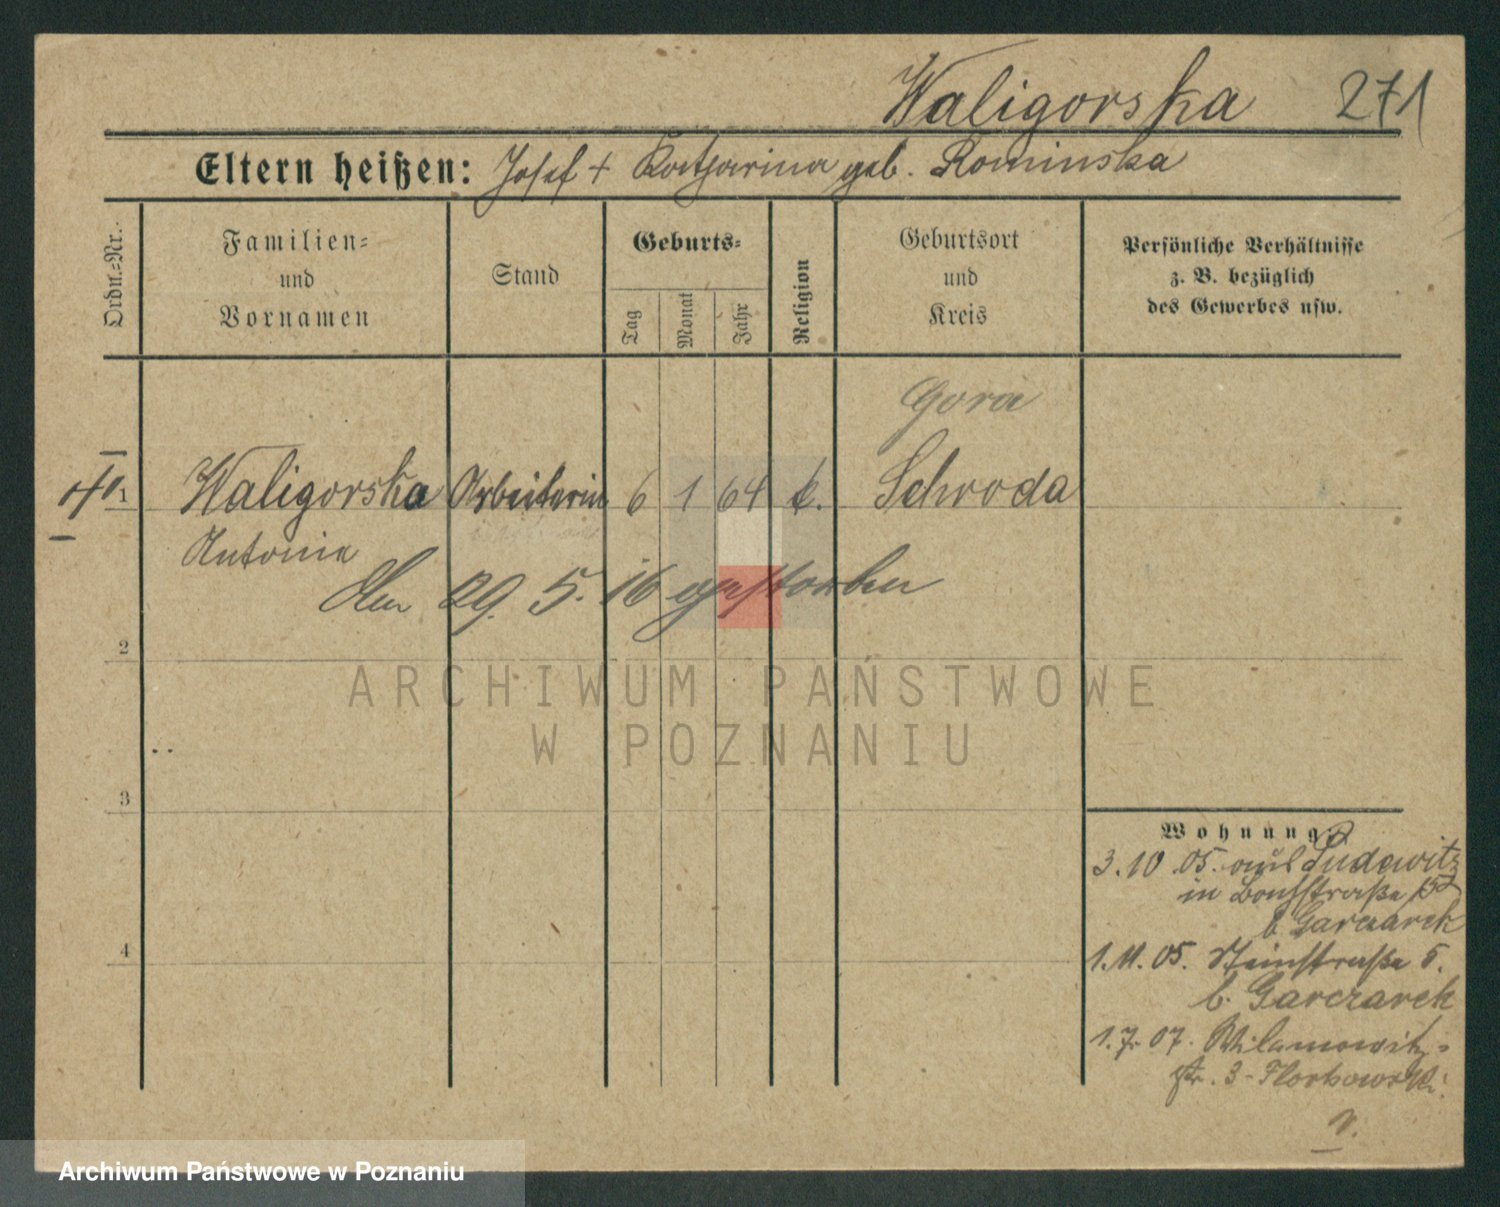 Waligorska 271
Eltern heißen: Josef + Katharina geb. Rominska
Ordn.-Nr.
Familien-
und
Vornamen
Stand
Geburts-
Tag
Monat
Jahr
Religion
Geburtsort
und
Kreis
Persönliche Verhältnisse
z. B. bezüglich
des Gewerbes usw.
Gora
1 Waligorska Arbeiterin 6 1 64 k. Schroda
Antonie
Den 29. 5. 16 gestorben
2
ARCHIWUM PAŃSTWOWE
W POZNANIU
3
Wohnung
3.10.05. aus Pudewitz
in
b. Garczarek
4
1.11.05. Steinstraße 5.
b. Garczarek
1.7.07. Wilamowitz-
str. 3
Archiwum Państwowe w Poznaniu